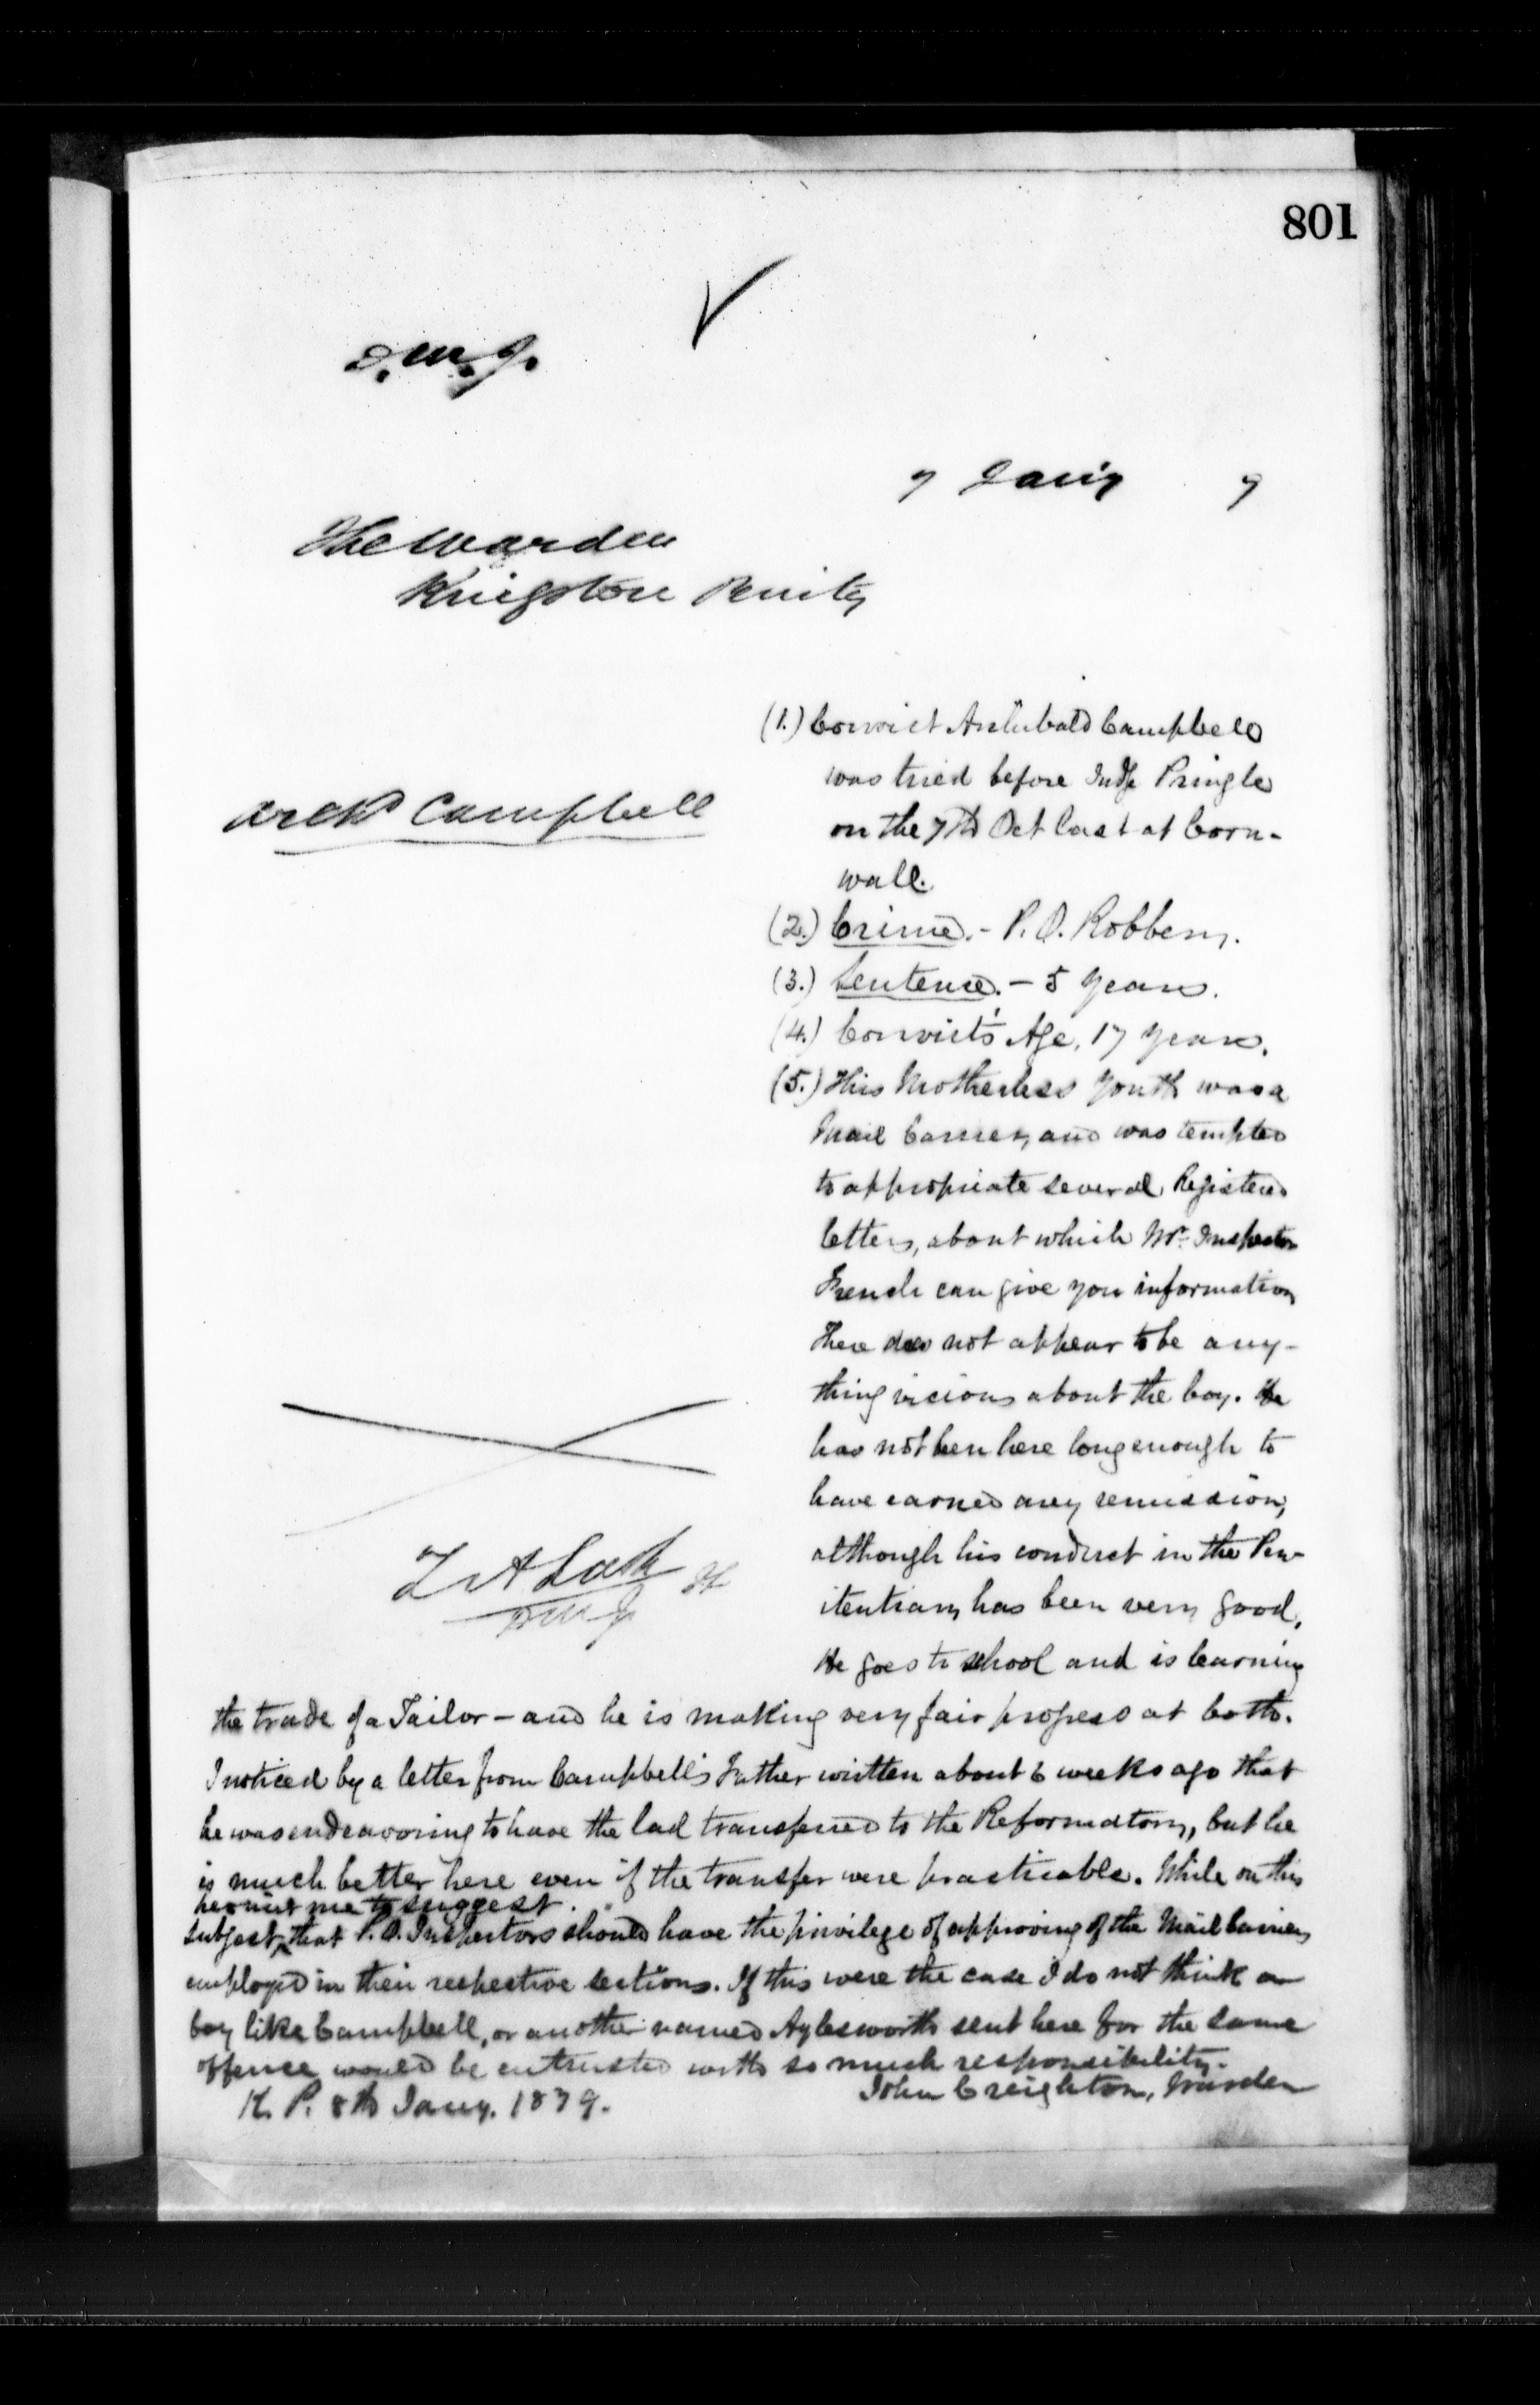 801
D.M.J.
7 Jany 9
The Warden
Kingston Penity
Archd Campbell
(1.) Convict Archibald Campbell
was tried before Judge Pringle
on the 7th Oct last at Corn-
wall.
(2.) Crime. - P.O. Robbery.
(3.) Sentence. - 5 years.
(4.) Convict's Age, 17 years.
(5.) This Motherless youth was a
Mail Carrier, and was tempted
to appropriate several Registered
letters, about which Mr. Inspector
French can give you information
There does not appear to be any-
thing vicious about the boy. He
has not been here long enough to
have earned any remission,
although his conduct in the Pen-
itentiary has been very good.
He goes to school and is learning
Z A Lash
DMJ
the trade of a Tailor - and he is making very fair progress at both.
I noticed by a letter from Campbell's Father written about 6 weeks ago that
he was endeavoring to have the lad transferred to the Reformatory, but he
is much better here even if the transfer were practicable. While on this
permit me to suggest
subject, that P.O. Inspectors should have the privilege of approving of the Mail Carriers
employed in their respective sections. If this were the case I do not think a
boy like Campbell, or another named Aylesworth sent here for the same
offence would be entrusted with so much responsibility.
John Creighton, Warden
K. P. 8th Jany. 1879.